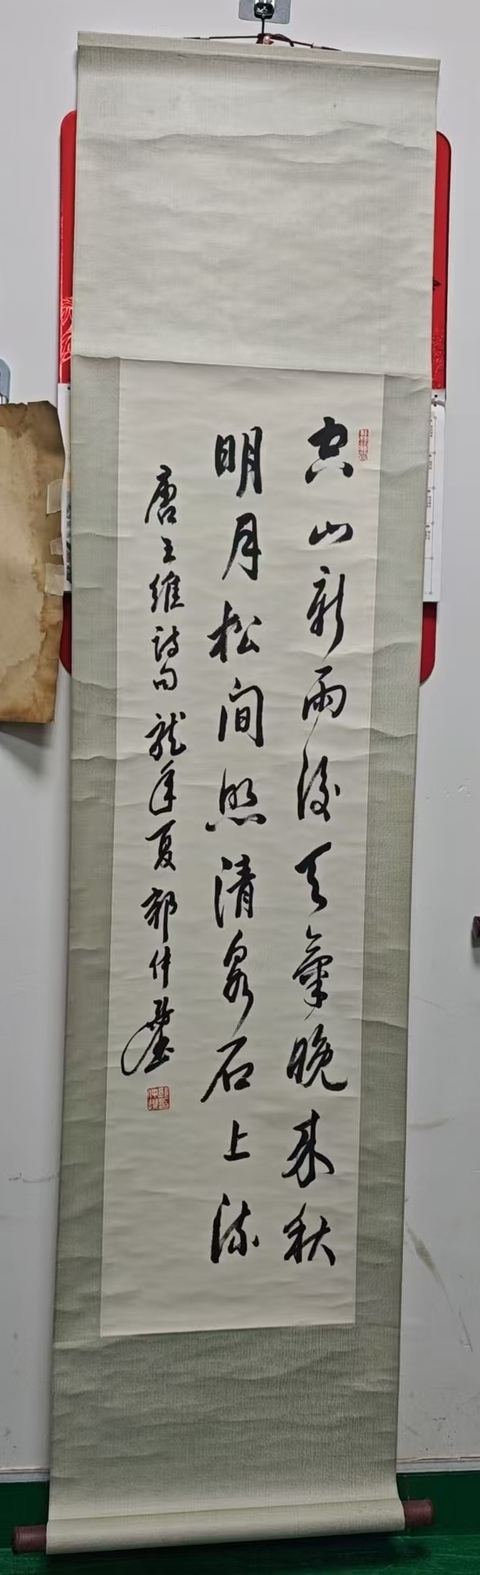 空山新雨後天氣晚来秋
明月松间照清泉石上流
唐王維詩句龍年夏郭仲